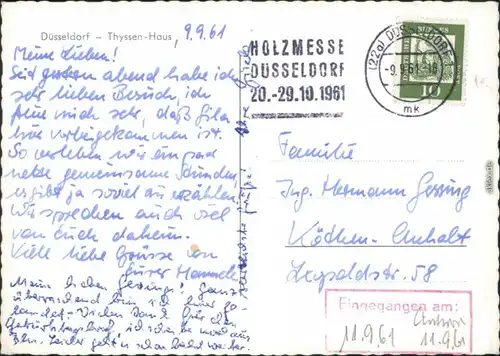 Düsseldorf – Thyssen-Haus,
9.9.61
Meine Lieben!
Seit gestern abend habe ich
sehr lieben Besuch, ich
freue mich sehr, daß
hier vorbeigekommen ist.
So verleben wir ein paar
nette gemeinsame Stunden,
es gibt ja soviel zu erzählen.
Wir sprechen auch viel
von Euch daheim.
Viele liebe Grüsse von
Eurer
Meine lieben Gessings! Ganz
überraschend bin ich hier ge-
landet – Vielen Dank für den
Geburtstagsbrief, ich schreibe noch aus
Leider geht es schon bald weiter.
HOLZMESSE
DÜSSELDORF
20.-29.10.1961
(22a) DÜSSELDORF
-9.9.61
mk
10
Familie
Ing. Hermann Gessing
Köthen-Anhalt
Leopoldstr. 58
Eingegangen am:
11.9.61
Antwort
11.9.61